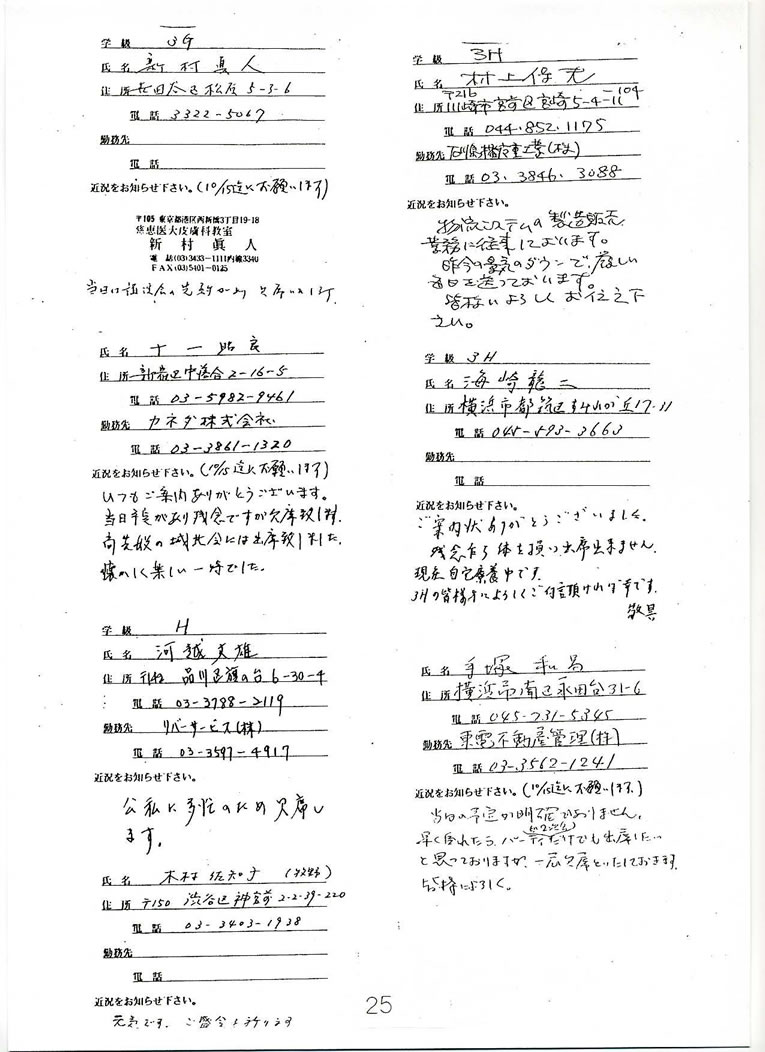 学級 3G
氏名 新村真人
住所 世田谷区松原5-3-6
電話 3322-5067
勤務先
電話
近況をお知らせ下さい。(10/15迄にお願いします)
〒105 東京都港区西新橋3丁目19-18
慈恵医大皮膚科教室
新村眞人
電話(03)3433-1111内線3340
FAX(03)5401-0125
当日は
氏名 十一
住所 新宿区中落合2-16-5
電話 03-5982-9461
勤務先 カネダ株式会社
電話 03-3861-1320
近況をお知らせ下さい。(10/15迄にお願いします)
いつもご案内ありがとうございます。
当日予定があり残念ですが欠席致します。
尚先般の城北会には出席致しました。
懐かしく楽しい一時でした。
学級 H
氏名 河越英雄
住所 品川区旗の台6-30-4
電話 03-3788-2119
勤務先 リバーサービス(株)
電話 03-3597-4917
近況をお知らせ下さい。
公私に多忙のため欠席し
ます。
氏名 木村佐知子
住所 〒150 渋谷区神宮前2-2-39-220
電話 03-3403-1938
勤務先
電話
近況をお知らせ下さい。
元気です。ご盛会を祈ります
学級 3H
氏名 村上保
〒216
住所 川崎市宮前区宮崎5-4-11-104
電話 044.852.1175
勤務先 石川島播磨重工業(株)
電話 03.3846.3088
近況をお知らせ下さい。
物流システムの製造販売
業務に従事しております。
昨今の景気のダウンで、厳しい
毎日を送っております。
皆様によろしくお伝え下
さい。
学級 3H
氏名 海崎龍二
住所 横浜市都筑区すみれが丘17-11
電話 045-593-3663
勤務先
電話
近況をお知らせ下さい。
ご案内状ありがとうございました。
残念乍ら体を損い出席出来ません。
現在自宅療養中です。
3Hの皆様方によろしくご伝言頂ければ幸です。
敬具
氏名 手塚和昌
住所 横浜市南区永田台31-6
電話 045-731-5345
勤務先 東電不動産管理(株)
電話 03-3562-1241
近況をお知らせ下さい。(10/15迄にお願いします)
当日の予定が明確でありません。
早く帰れたら、パーティだけでも出席したい
と思っておりますが、一応欠席といたしておきます。
皆様によろしく。
25